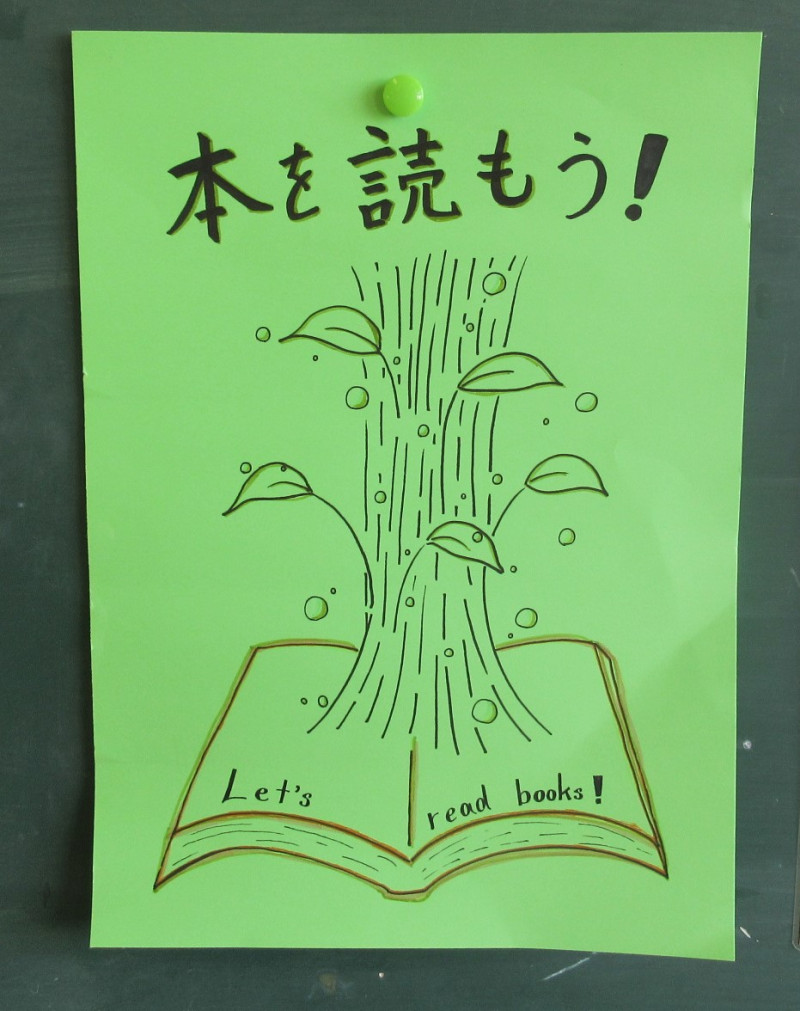 本を読もう!
Let's read books!